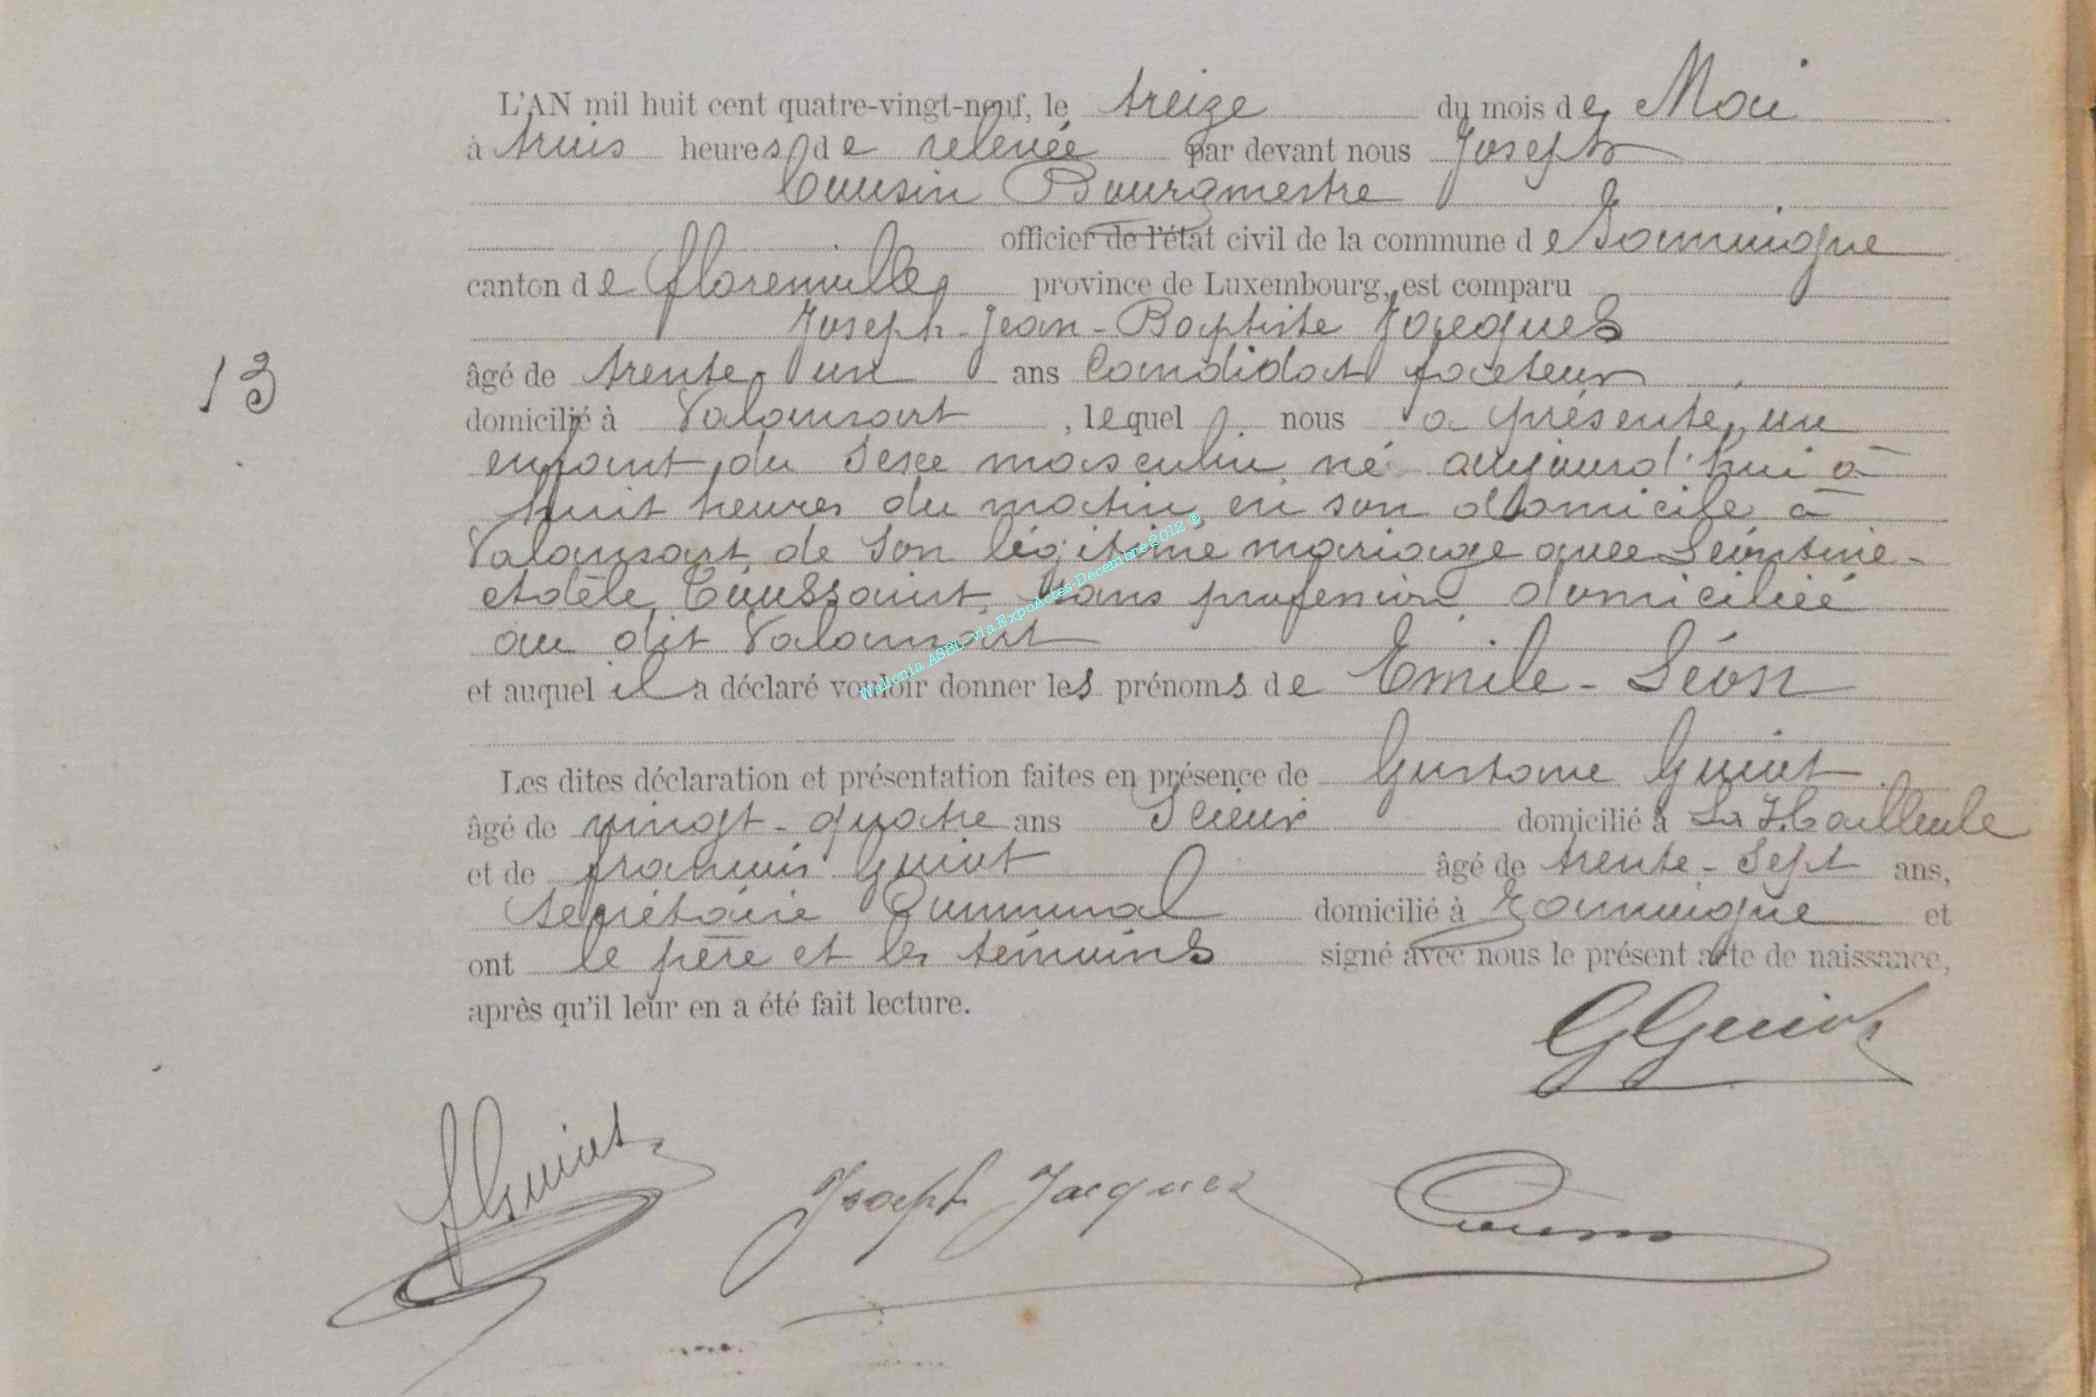 L'AN mil huit cent quatre-vingt-neuf, le treize du mois de Mai
à trois heures de relevée par devant nous Joseph
Cousin Bourgmestre
officier de l'état civil de la commune de Jamoigne
canton de florenville province de Luxembourg, est comparu
Joseph-Jean-Baptiste Jacques
13
âgé de trente-un ans Candidat facteur
domicilié à Valansart, lequel nous a présenté, un
enfant du sexe masculin né aujourd'hui à
huit heures du matin, en son domicile à
Valansart, de son légitime mariage avec Léontine-
Adèle Toussaint, sans profession, domiciliée
au dit Valansart
et auquel il a déclaré vouloir donner les prénoms de Emile-Léon
Les dites déclaration et présentation faites en présence de Gustave Guiot
âgé de vingt-quatre ans Scieur domicilié à La Hailleule
et de françois Guiot âgé de trente-sept ans,
Secrétaire Communal domicilié à Jamoigne et
ont le père et les témoins signé avec nous le présent acte de naissance,
après qu'il leur en a été fait lecture.
GGuiot
fGuiot
Joseph Jacques
Cousin
Wallonia ASBL via ExpoActes-Décembre 2012 ©